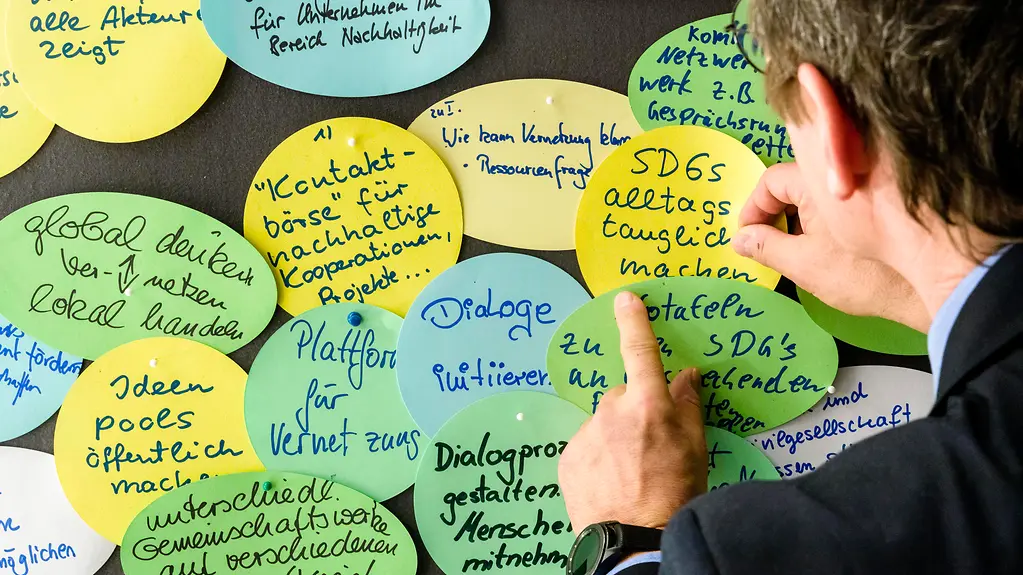 alle Akteure
zeigt
für Unternehmen im
Bereich Nachhaltigkeit
Netzwer
werk z.B
Gesprächsrun
zu I.
Wie kann Vernetzung
• Ressourcenfrage
1)
"Kontakt-
börse" für
nachhaltige
Kooperationen,
Projekte...
SDGs
alltags
tauglich
machen
global denken
ver- ↕ netzen
lokal handeln
Dialoge
initiieren
Plattform
für
Vernetzung
otafeln
zu SDG's
an
und
Ideen
pools
öffentlich
mache
Dialogproz
gestalten.
Menschen
mitnehm
unterschiedl.
Gemeinschaftswerke
auf verschiedenen
nt fördern
öglichen